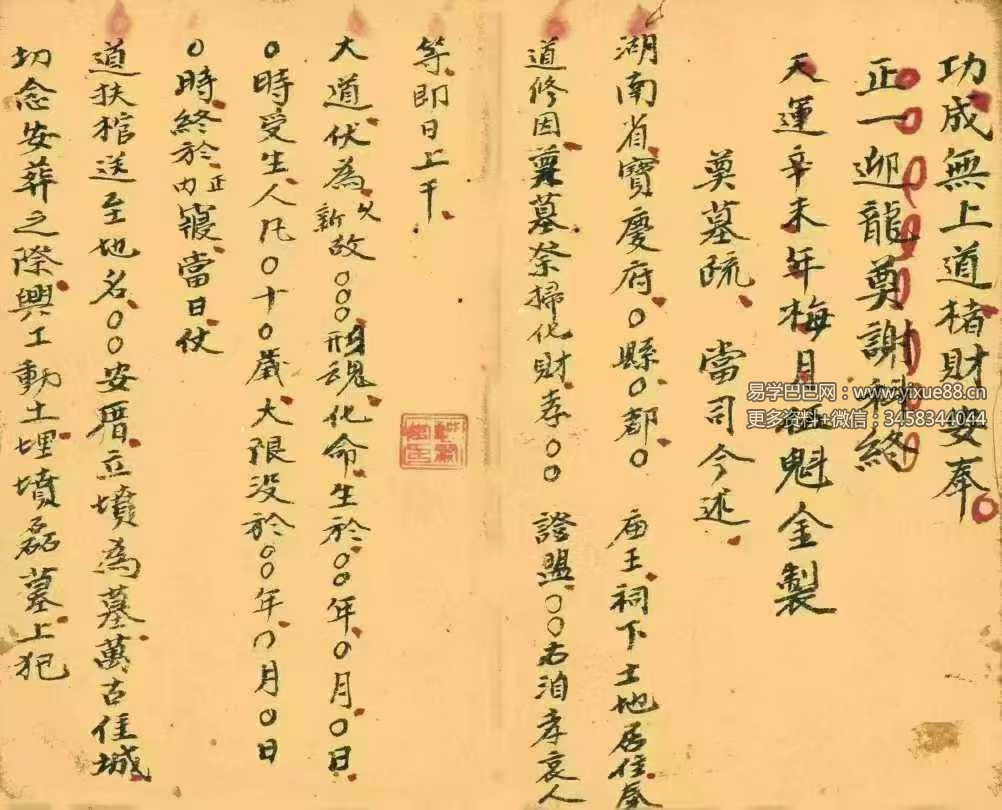 功成無上道楮財女奉
正一迎龍奠謝科終
天運辛未年梅月 魁金製
奠墓疏 當司今述
湖南省寶慶府○縣○都○ 庙王祠下土地居住奉
道修因奠墓祭掃化財孝○○ 證盟○○右洎孝哀人
等即日上干
大道伏為父新故○○○形魂化命生於○○年○月○日
○時受生人凡○十○歲大限没於○○年○月○日
○時終於内正寢當日仗
道扶棺送至地名○○安厝立墳為墓萬古佳城
切念安葬之際興工動土埋墳磊墓上犯
易学巴巴网:www.yixue88.cn
更多资料+微信:3458344044